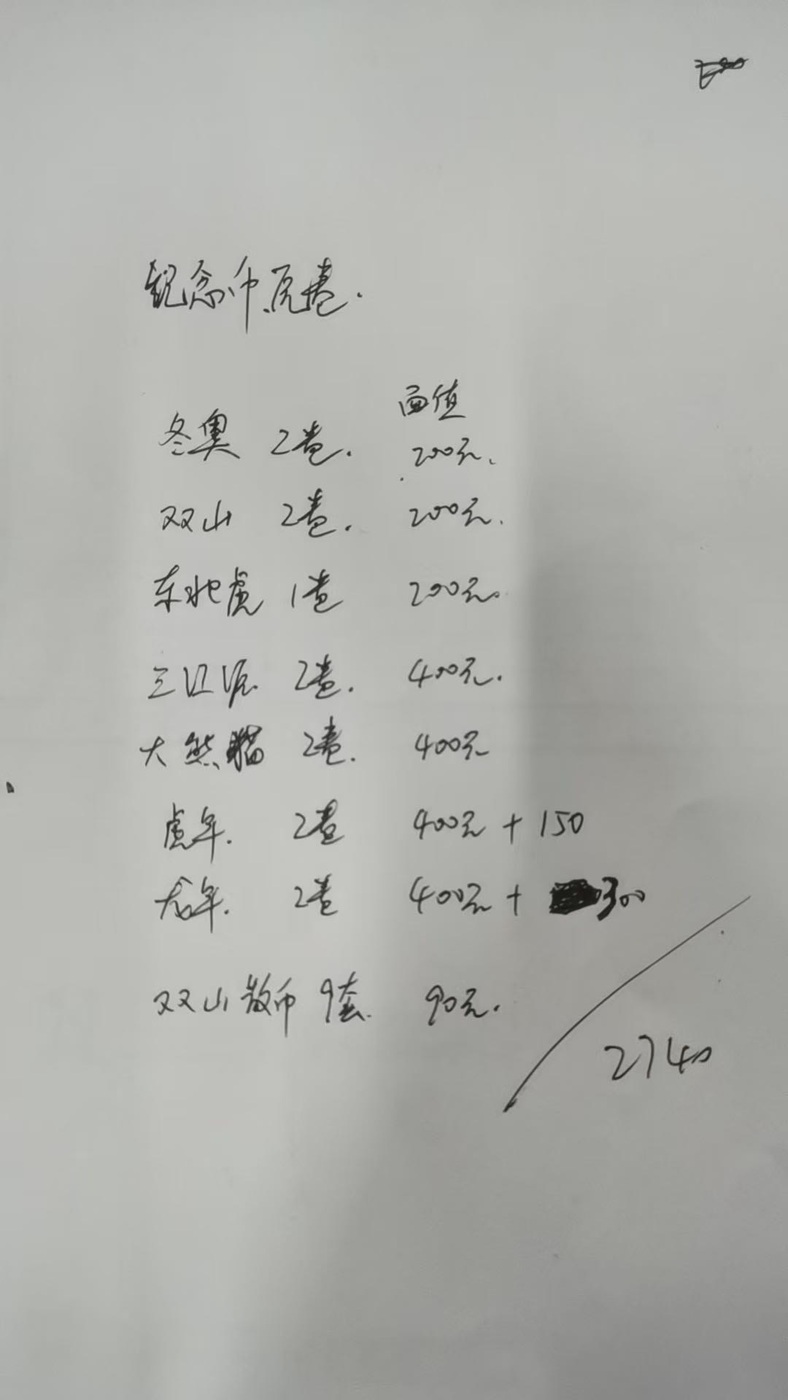 纪念币原卷.
面值
冬奥 2卷. 200元.
双山 2卷. 200元.
东北虎 1卷 200元.
三江源 2卷. 400元.
大熊猫 2卷. 400元
虎年. 2卷 400元 + 150
龙年. 2卷 400元 + 300
双山散币 9套. 90元.
2740